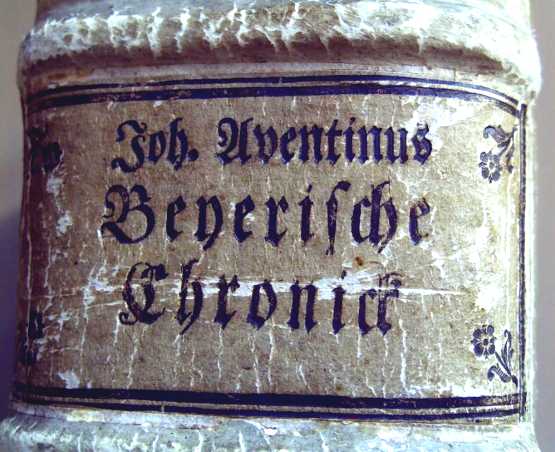 Joh. Aventinus
Beyeriſche
Chronick